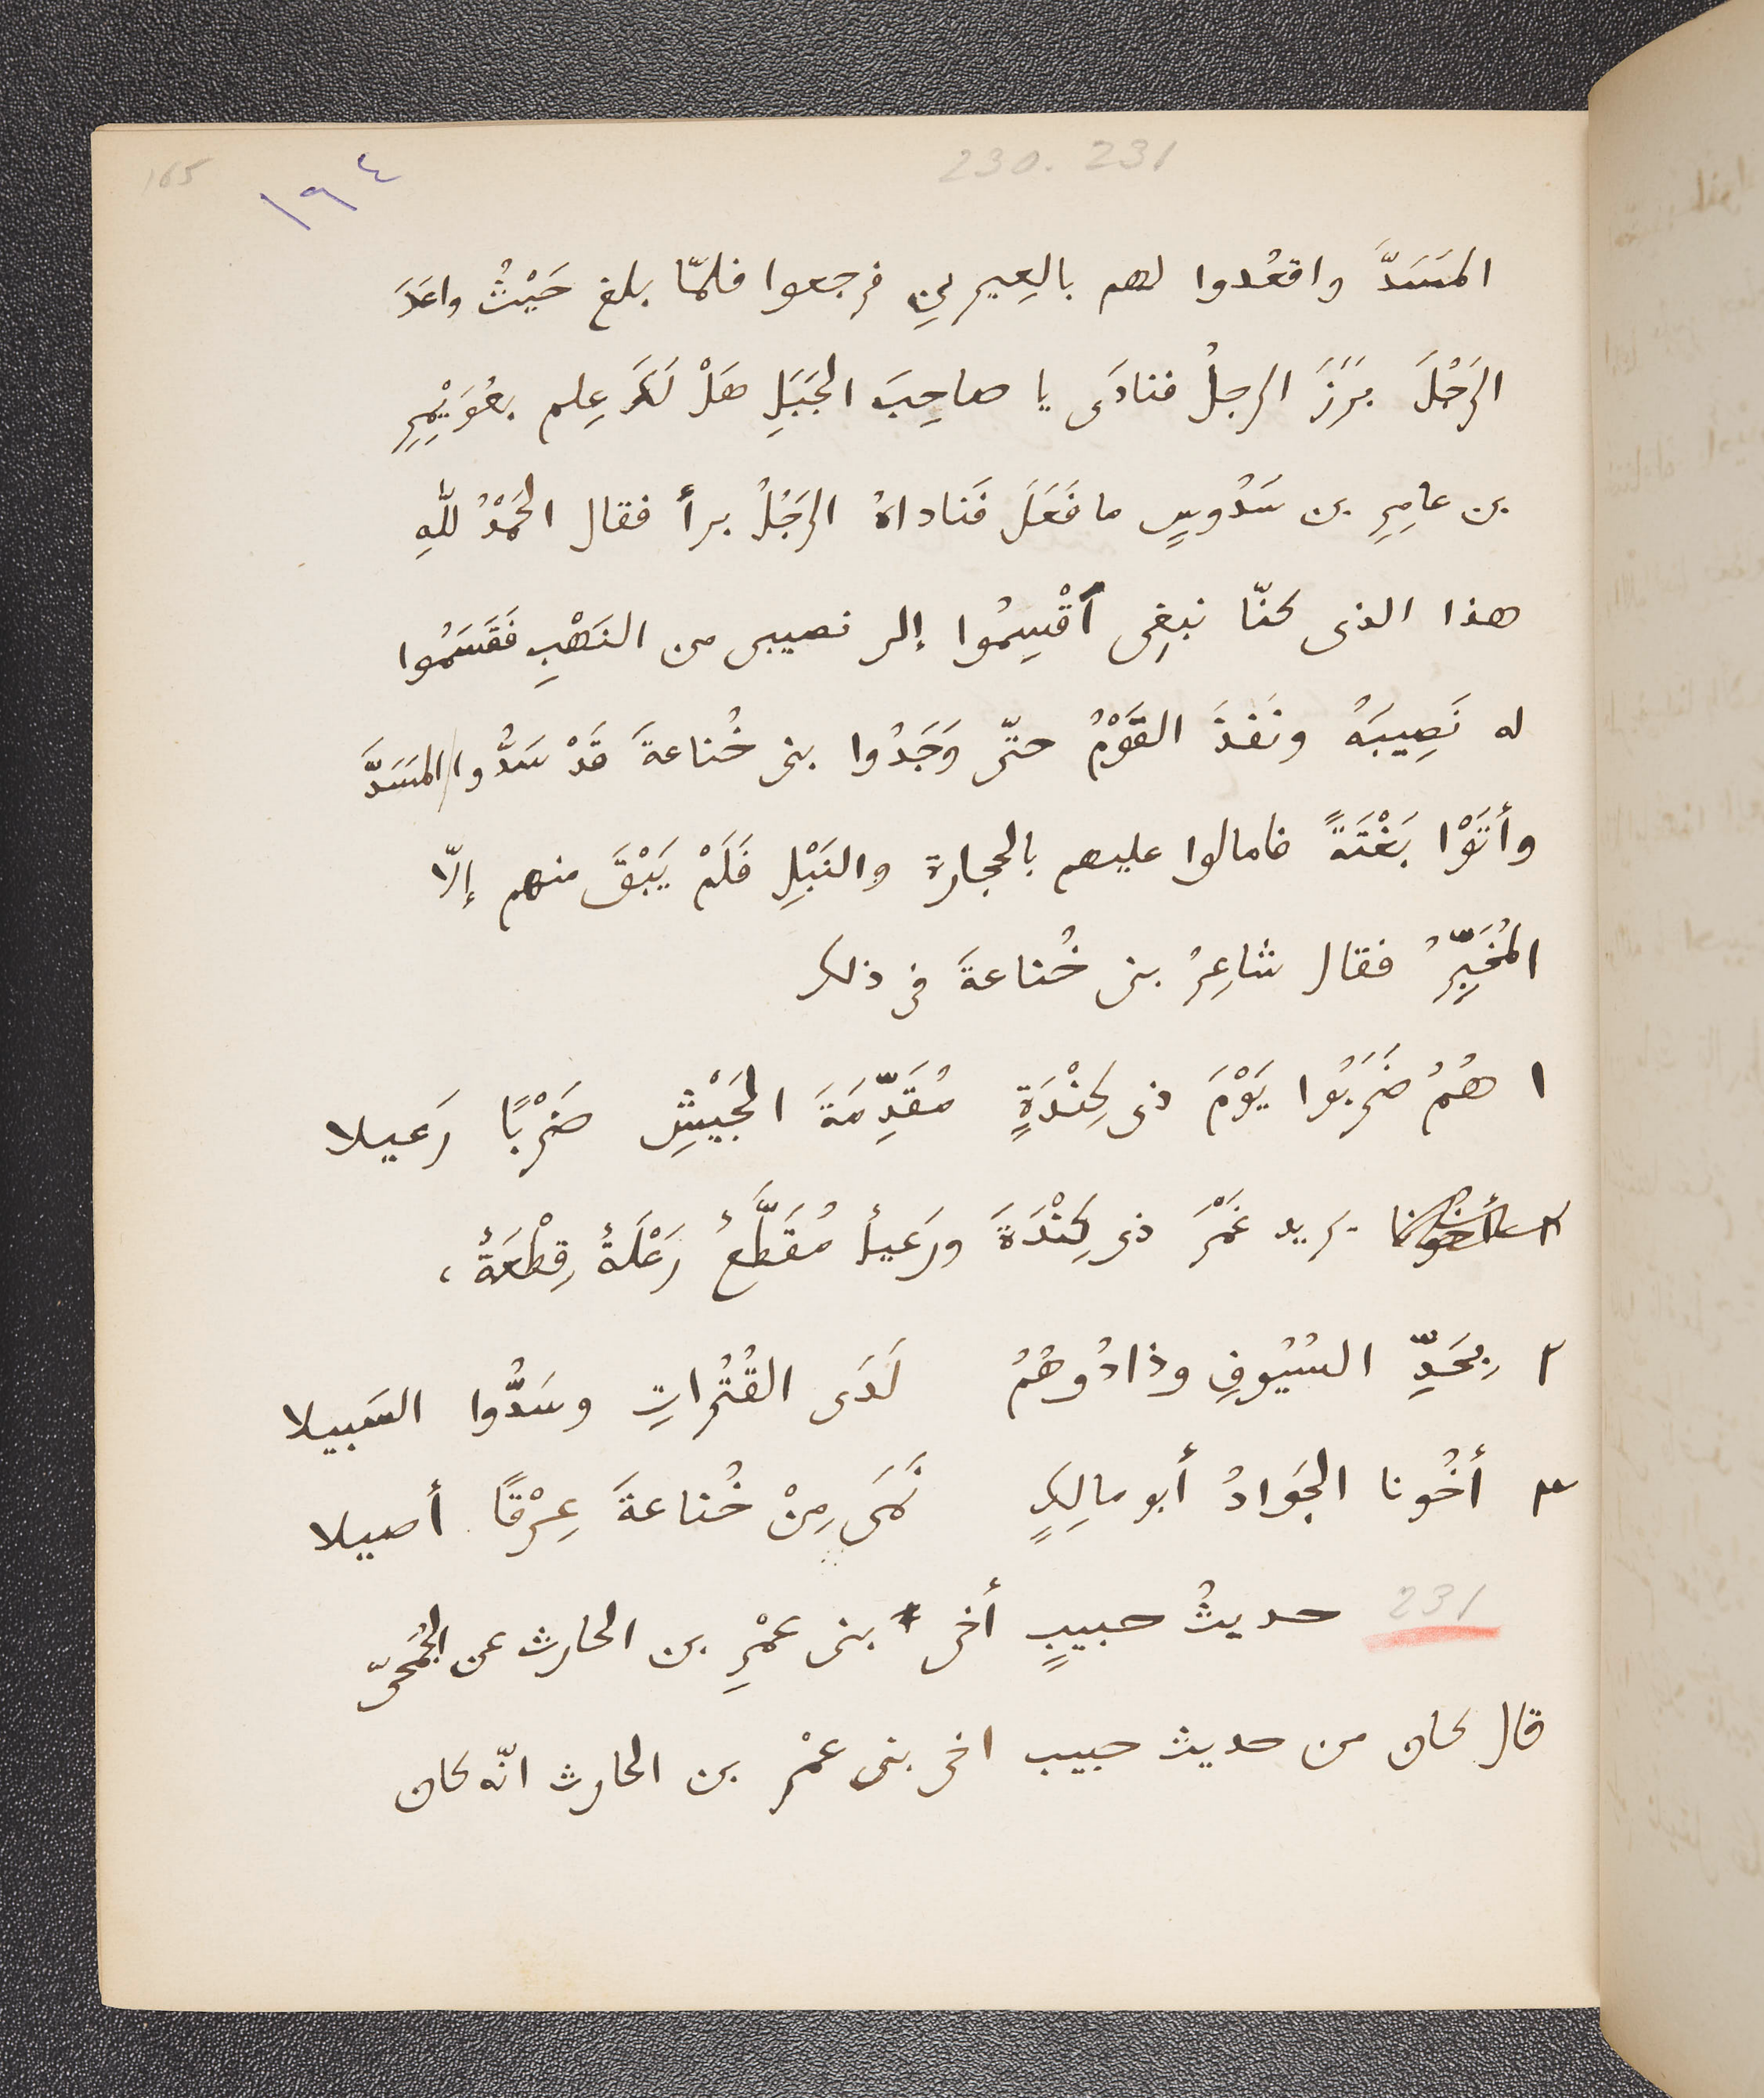 165
١٩٤
230. 231
المَسَدَّ واقعُدوا لهم بالعِيرينِ فرجعوا فلمّا بلغ حَيْثُ واعَدَ
الرَجُلَ بَرَزَ الرجلُ فنادَى يا صاحِبَ الجَبَلِ هَلْ لَكَ عِلم بعُوَيْمِرِ
بن عامِرِ بن سَدُوسٍ ما فَعَلَ فَناداهُ الرَجُلُ برأ فقال الحَمْدُ للّٰهِ
هذا الذى كنّا نبغِى ٱقْسِمُوا إلى نصيبى من النَهْبِ فَقَسَمُوا
له نَصِيبَهُ ونَفذَ القَوْمُ حتّى وَجَدُوا بنى خُناعةَ قَدْ سَدُّوا المَسَدَّ
وأتَوْا بَغْتَةً فامالوا عليهم بالحجارة والنَبْلِ فَلَمْ يَبْقَ منهم إلّا
المُخَبِّرُ فقال شاعِرُ بنى خُناعةَ فى ذلك
١ هُمُ ضَرَبُوا يَوْمَ ذى كِنْدَةٍ مُقَدِّمَةَ الجَيْشِ ضَرْبًا رَعيلا
٢ أخونا يريد غَمْرَ ذى كِنْدَةَ ورَعيلُ مُقَطَّعُ رَعْلَةُ قِطْعَةُ،
٢ بِحَدِّ السُيُوفِ وذادُوهُمُ لَدَى القُتُراتِ وسَدُّوا السَبيلا
٣ أخُونا الجَوادُ أبو مالِكٍ نَمَى مِنْ خُناعةَ عِرْقًا أصيلا
231 حديثُ حبيبٍ أخى * بنى عمْرِ بن الحارث عن الجُمَحىّ
قال كان من حديث حبيب اخى بنى عمْر بن الحارث انّه كان